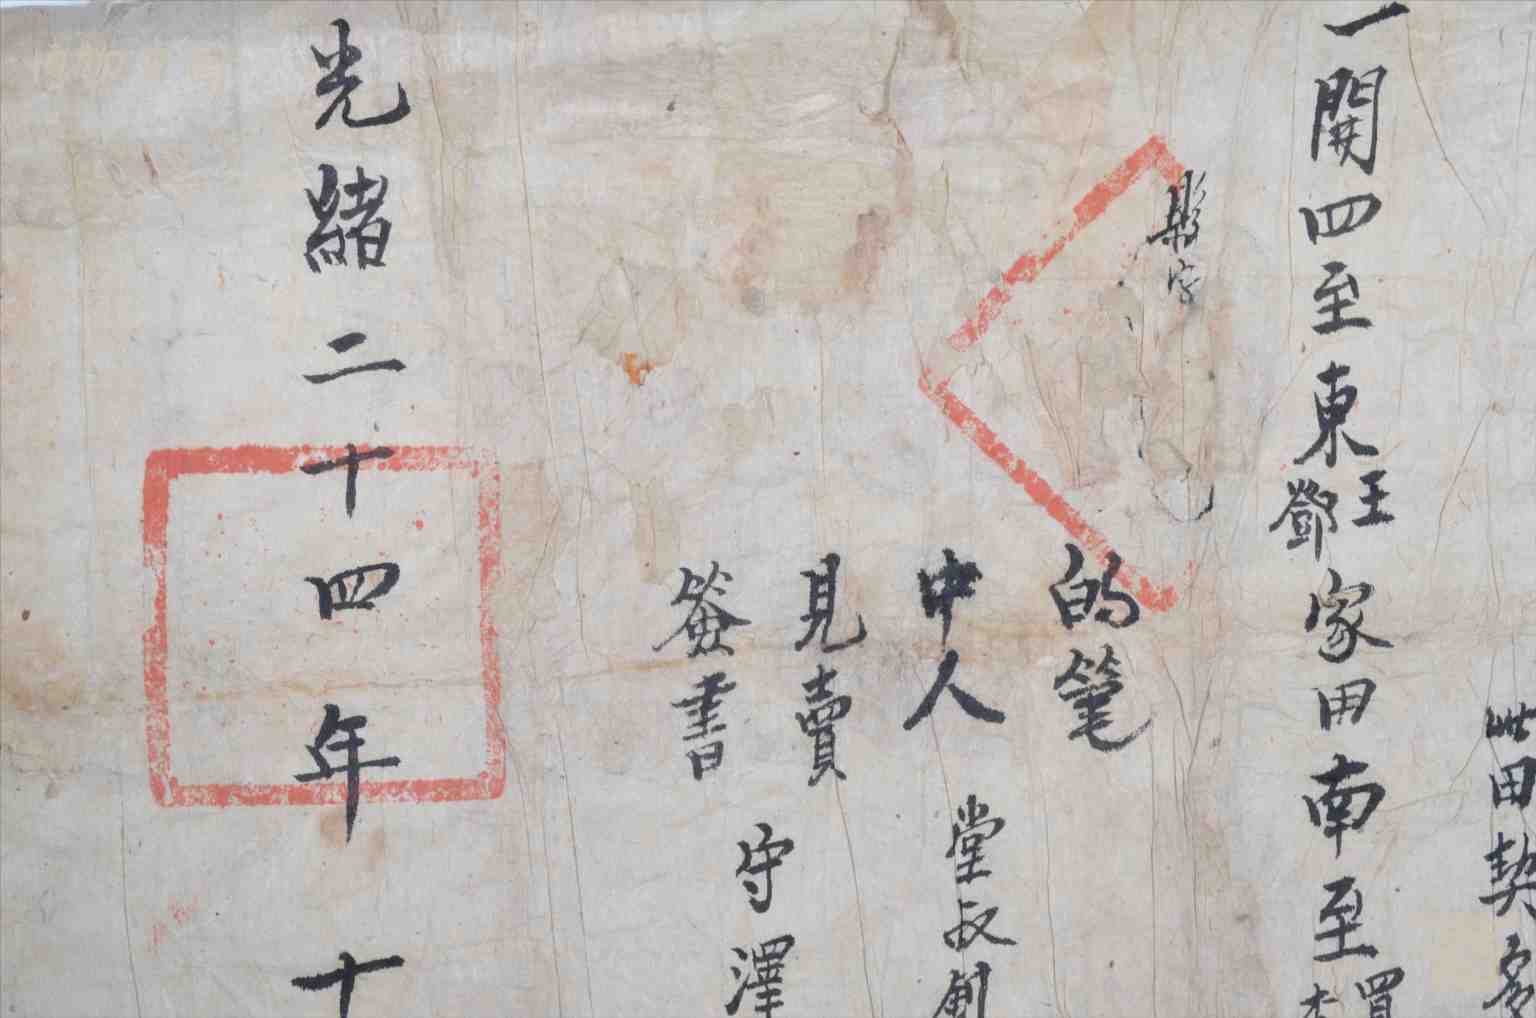 此田契
一開四至東王
鄧家田南至買
的筆
中人 堂叔
見賣 守澤
簽書
光緒二十四年十